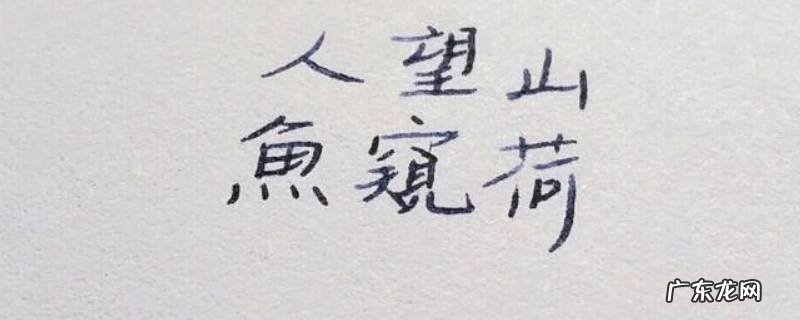 人望山
魚窺荷
广东龙网